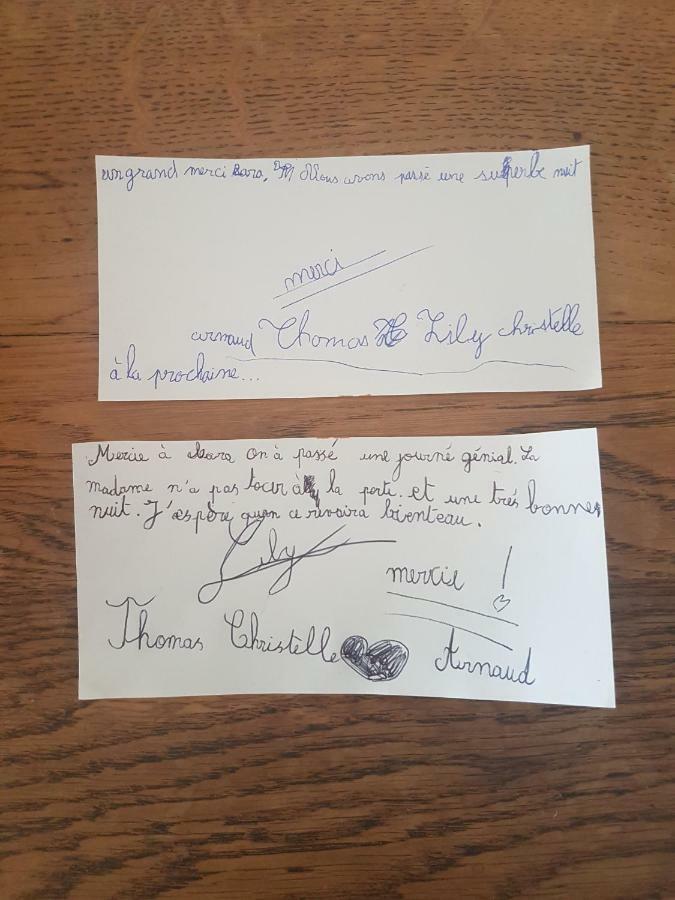 un grand merci Sara, Nous avons passé une superbe nuit
merci
arnaud Thomas Lily christelle
à la prochaine...
Mercie à Sara on à passé une journé génial. La
madame n'a pas tocir à la porte. et une trés bonne
nuit. J'æspère quon ce revoira bienteau.
Lily
mercie !
Thomas Christelle Arnaud